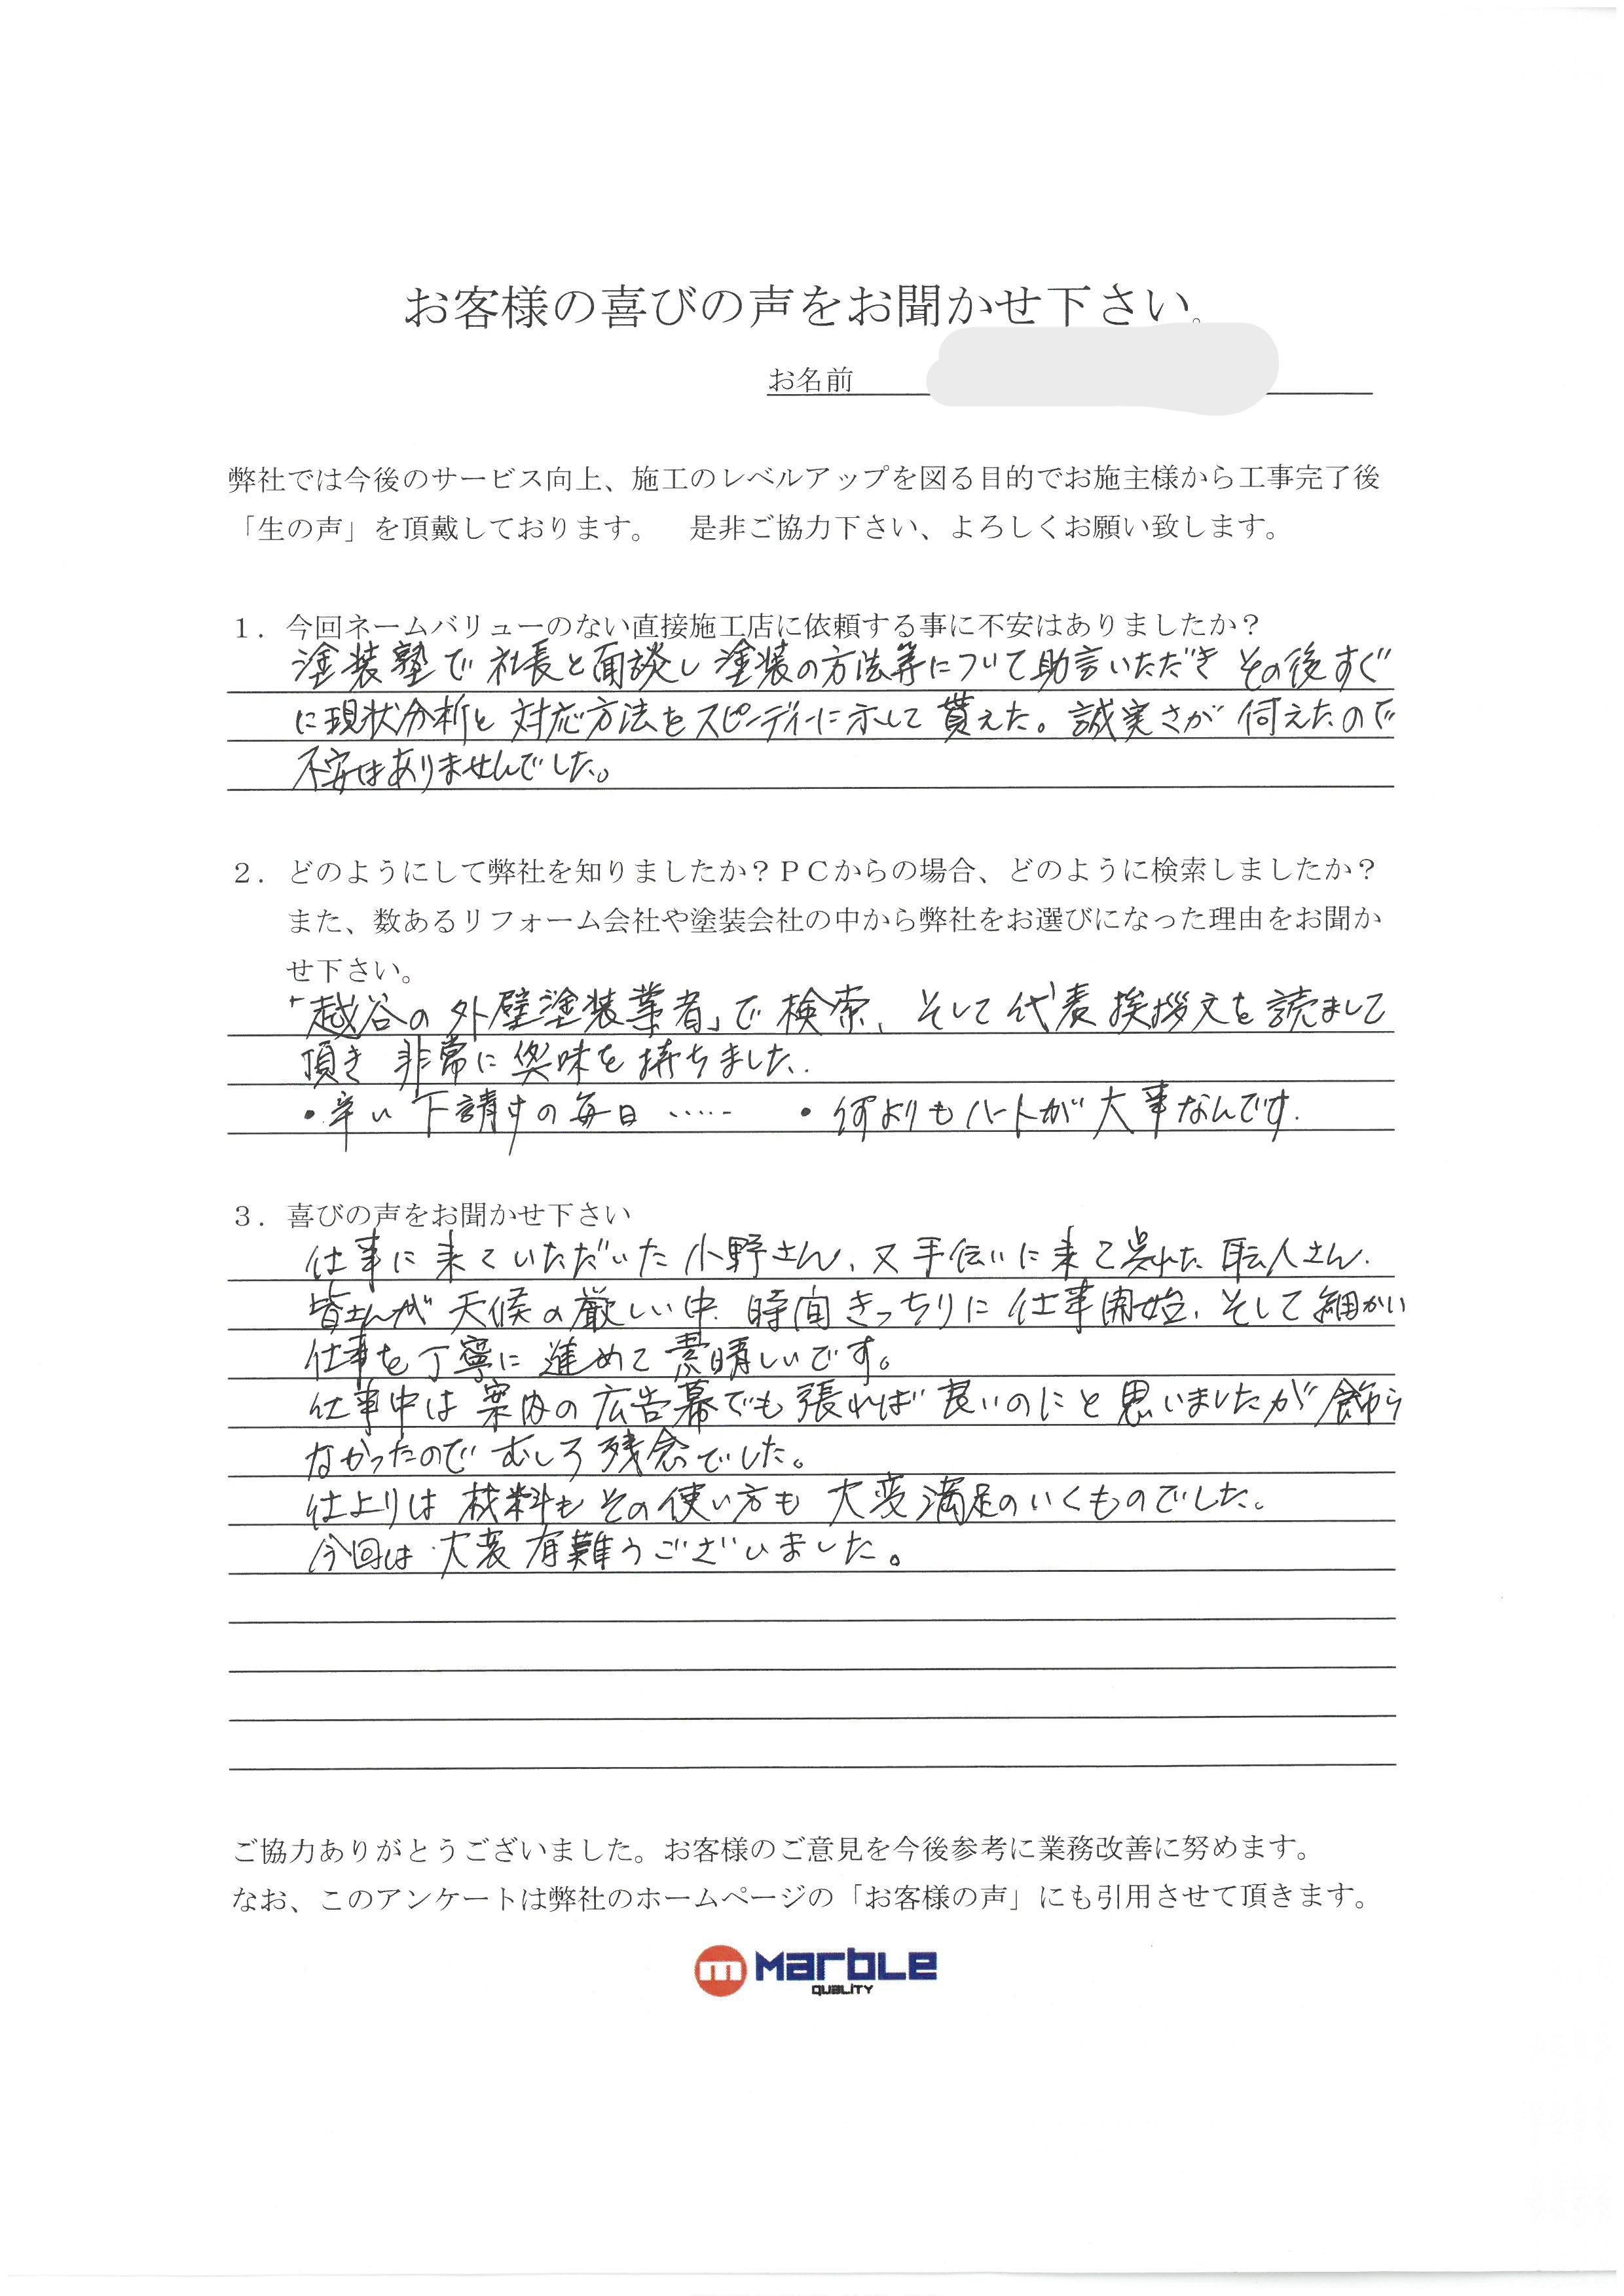 お客様の喜びの声をお聞かせ下さい。
お名前
弊社では今後のサービス向上、施工のレベルアップを図る目的でお施主様から工事完了後
「生の声」を頂戴しております。　是非ご協力下さい、よろしくお願い致します。
１．今回ネームバリューのない直接施工店に依頼する事に不安はありましたか？
塗装塾で社長と面談し塗装の方法等について助言いただき その後すぐ
に現状分析と対応方法をスピーディーに示して貰えた。誠実さが伺えたので
不安はありませんでした。
２．どのようにして弊社を知りましたか？ＰＣからの場合、どのように検索しましたか？
また、数あるリフォーム会社や塗装会社の中から弊社をお選びになった理由をお聞か
せ下さい。
「越谷の外壁塗装業者」で検索、そして代表挨拶文を読まして
頂き 非常に興味を持ちました.
・辛い下請けの毎日 ‥‥‥ ・何よりもハートが大事なんです.
３．喜びの声をお聞かせ下さい
仕事に来ていただいた小野さん、又手伝いに来て呉れた職人さん.
皆さんが天候の厳しい中 時間きっちりに仕事開始、そして細かい
仕事を丁寧に進めて素晴しいです。
仕事中は案内の広告幕でも張れば良いのにと思いましたが飾ら
なかったのでむしろ残念でした。
仕上りは材料もその使い方も大変満足のいくものでした。
今回は大変有難うございました。
ご協力ありがとうございました。お客様のご意見を今後参考に業務改善に努めます。
なお、このアンケートは弊社のホームページの「お客様の声」にも引用させて頂きます。
m Marble
QUALITY